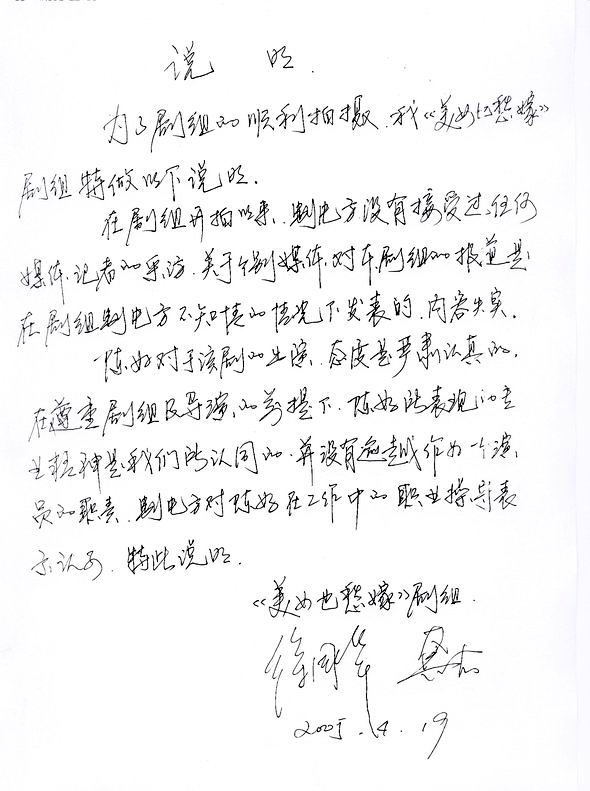 说 明.
为了剧组的顺利拍摄.我《美女也愁嫁》
剧组特做以下说明.
在剧组开拍以来.制片方没有接受过任何
媒体.记者的采访.关于个别媒体.对本剧组的报道是
在剧组制片方不知情的情况下发表的.内容失实.
陈好对于该剧的出演.态度是严肃认真的.
在尊重剧组及导演的前提下.陈好所表现的专
业精神是我们所认同的.并没有逾越作为一个演
员的职责.制片方对陈好在工作中的职业操守表
示认可.特此说明.
《美女也愁嫁》剧组.
2005.4.19